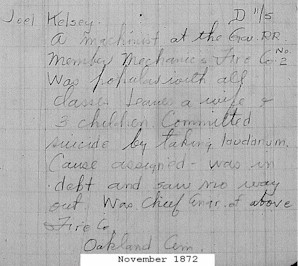 Joel Kelsey. D 11/5
A machinist at the Gov. RR.
Member Mechanics Fire Co. No 2
Was popular with all
classes. Leaves a wife &
3 children. Committed
suicide by taking laudanum.
Cause assigned - was in
debt and saw no way
out. Was Chief Engr. of above
Fire Co.
Oakland Cem.
November 1872